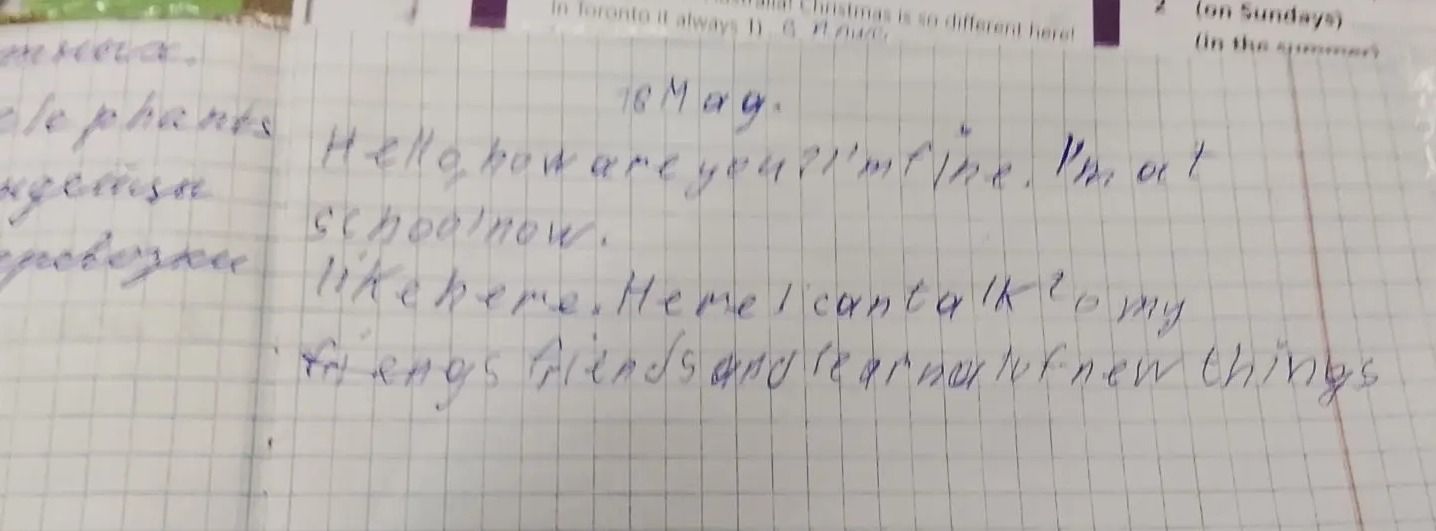 Christmas is so different here!
In Toronto it always
2 (on Sundays)
(in the summer)
elephants
16 May.
Hello, how are you? I'm fine. I'm at
school now.
I like here. Here I can talk to my
friengs friends and learn a lot new things